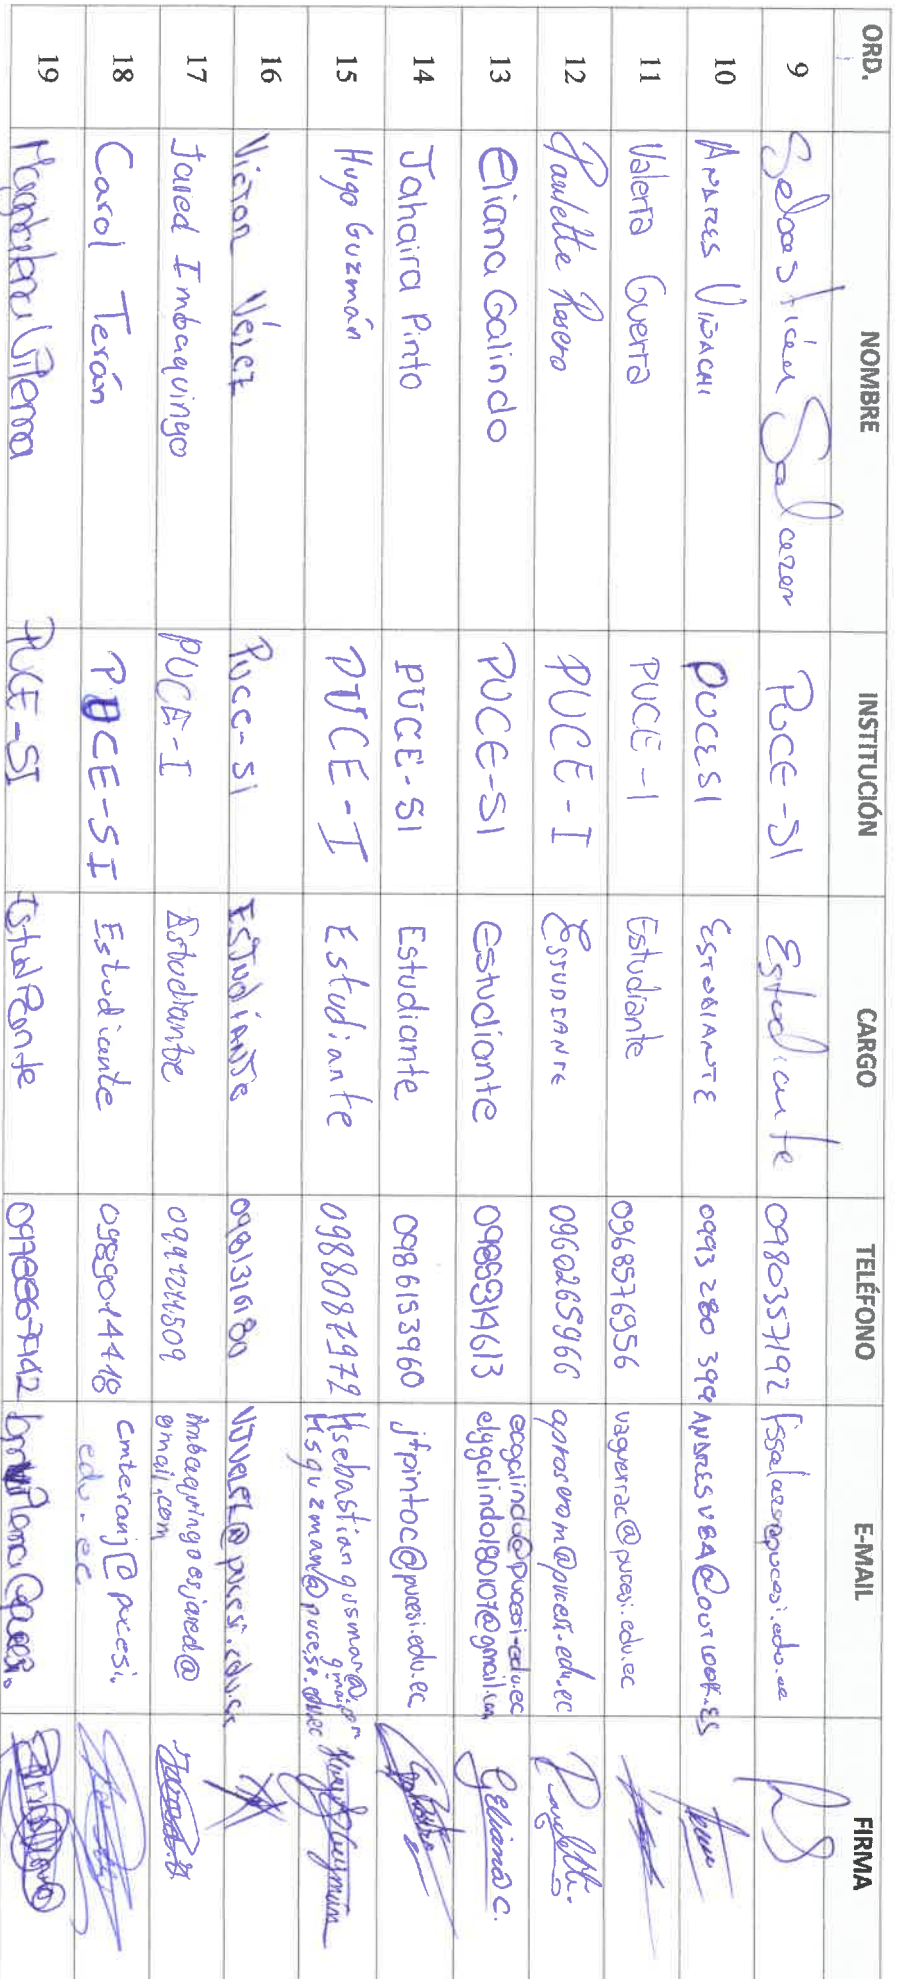 ORD. NOMBRE INSTITUCIÓN CARGO TELÉFONO E-MAIL FIRMA
9 Sebastián Salazar PUCE-SI Estudiante 0980357192
10 ANDRES VIÑACHI PUCESI ESTUDIANTE 0993 280 399 ANDRESVE4@OUTLOOK.ES
11 Valeria Guerra PUCE-I Estudiante 0968576956 vaguerrac@pucesi.edu.ec
12 Paulette Rosero PUCE-I ESTUDIANTE 0960265966 aprosero m@pucesi.edu.ec Paulette.
13 Eliana Galindo PUCE-SI Estudiante ecgalindo@pucesi.edu.ec
elygalindo180107@gmail.com
14 Jahaira Pinto PUCE-SI Estudiante 0986153960 jfpintoc@pucesi.edu.ec
15 Hugo Guzmán PUCE-I Estudiante 0988087972 Hsebastianguzman@
gmail.com
Hsguzman@pucesi.edu.ec Hugo Guzmán
16 Victor Vélez PUCE-SI ESTUDIANTE 0981316180 VJVELEZ@pucesi.edu.ec
17 Jared Imbaquingo PUCE-I Estudiante imbaquingoesjared@
gmail.com
18 Carol Terán PUCE-SI Estudiante 0989014418 cmteranj@pucesi.
edu.ec
19 PUCE-SI Estudiante